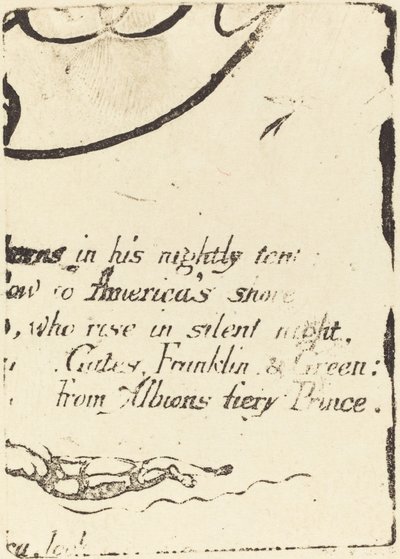 burns in his nightly tent
low to America's shore
, who rise in silent night,
Gates, Franklin & Green:
from Albions fiery Prince.